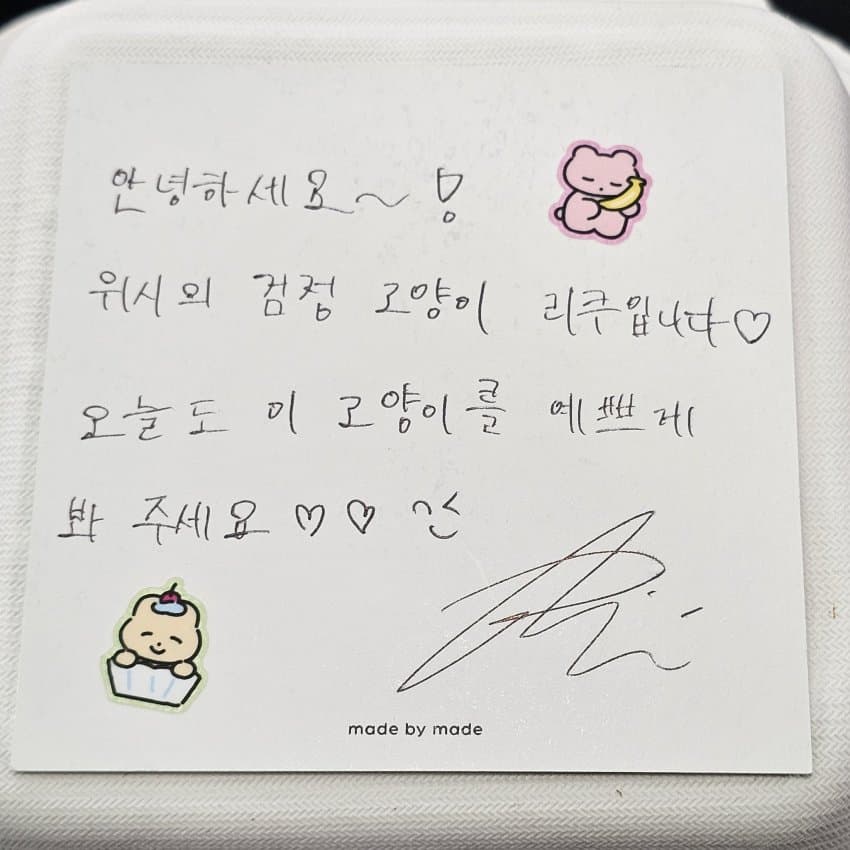 안녕하세요~!
위시의 검정 고양이 리쿠입니다♡
오늘도 이 고양이를 예쁘게
봐 주세요♡♡
made by made